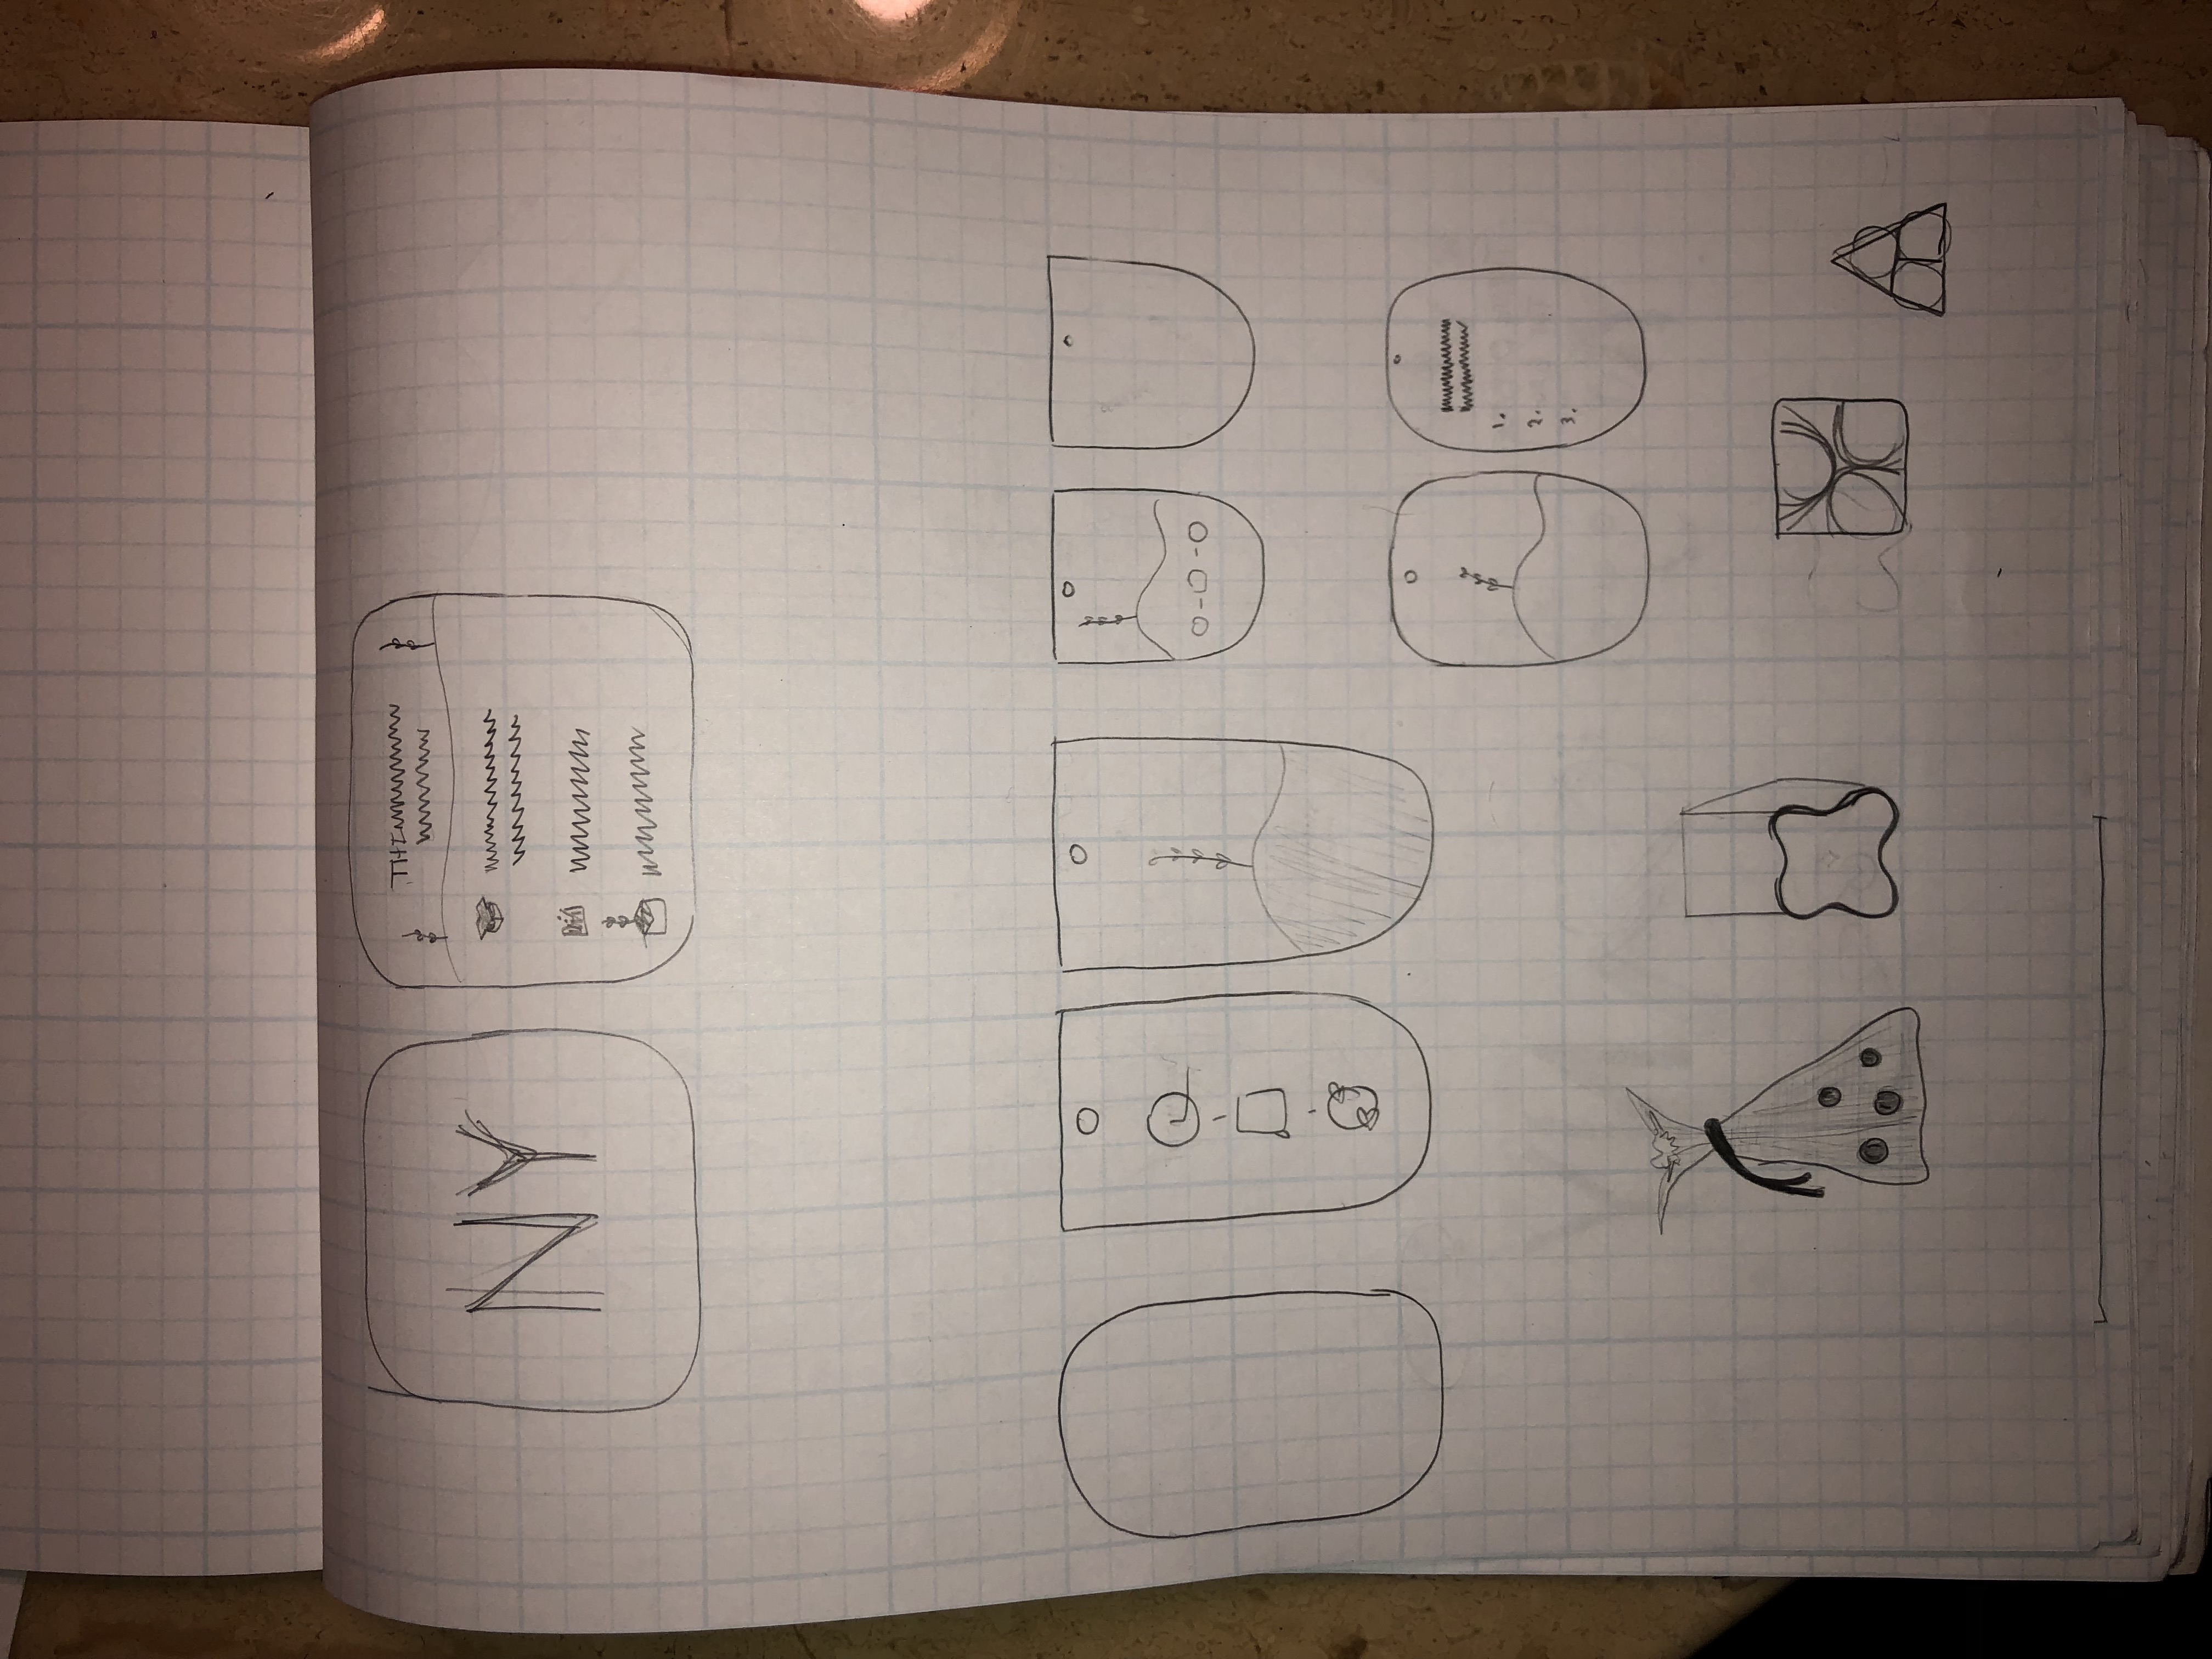 NY
THI
1.
2.
3.